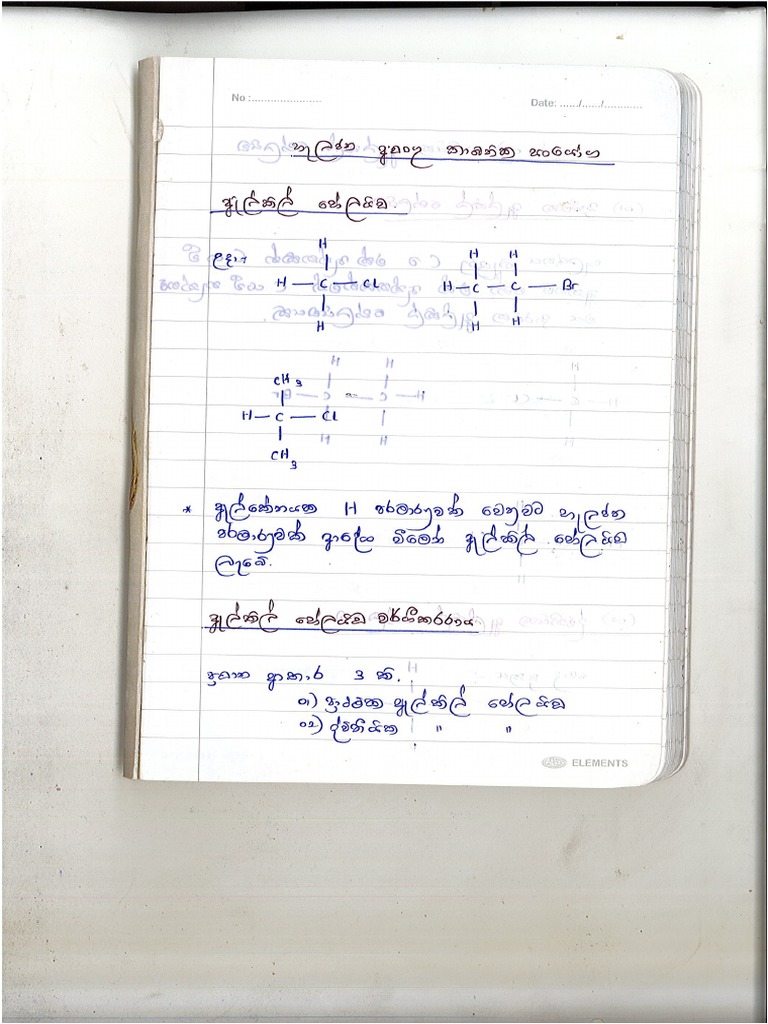 No :...................... Date: ....../....../............
හැලජන අඩංගු කාබනික සංයෝග
ඇල්කිල් හේලයිඩ
උදාඃ H H H
H — C — Cl H — C — C — Br
H H H
CH3
H — C — Cl
CH3
* ඇල්කේනයක H පරමාණුවක් වෙනුවට හැලජන
පරමාණුවක් ආදේශ වීමෙන් ඇල්කිල් හේලයිඩ
ලැබේ.
ඇල්කිල් හේලයිඩ වර්ගීකරණය
ප්‍රධාන ආකාර 3 කි.
01) ප්‍රාථමික ඇල්කිල් හේලයිඩ
02) ද්විතීයික " "
ELEMENTS